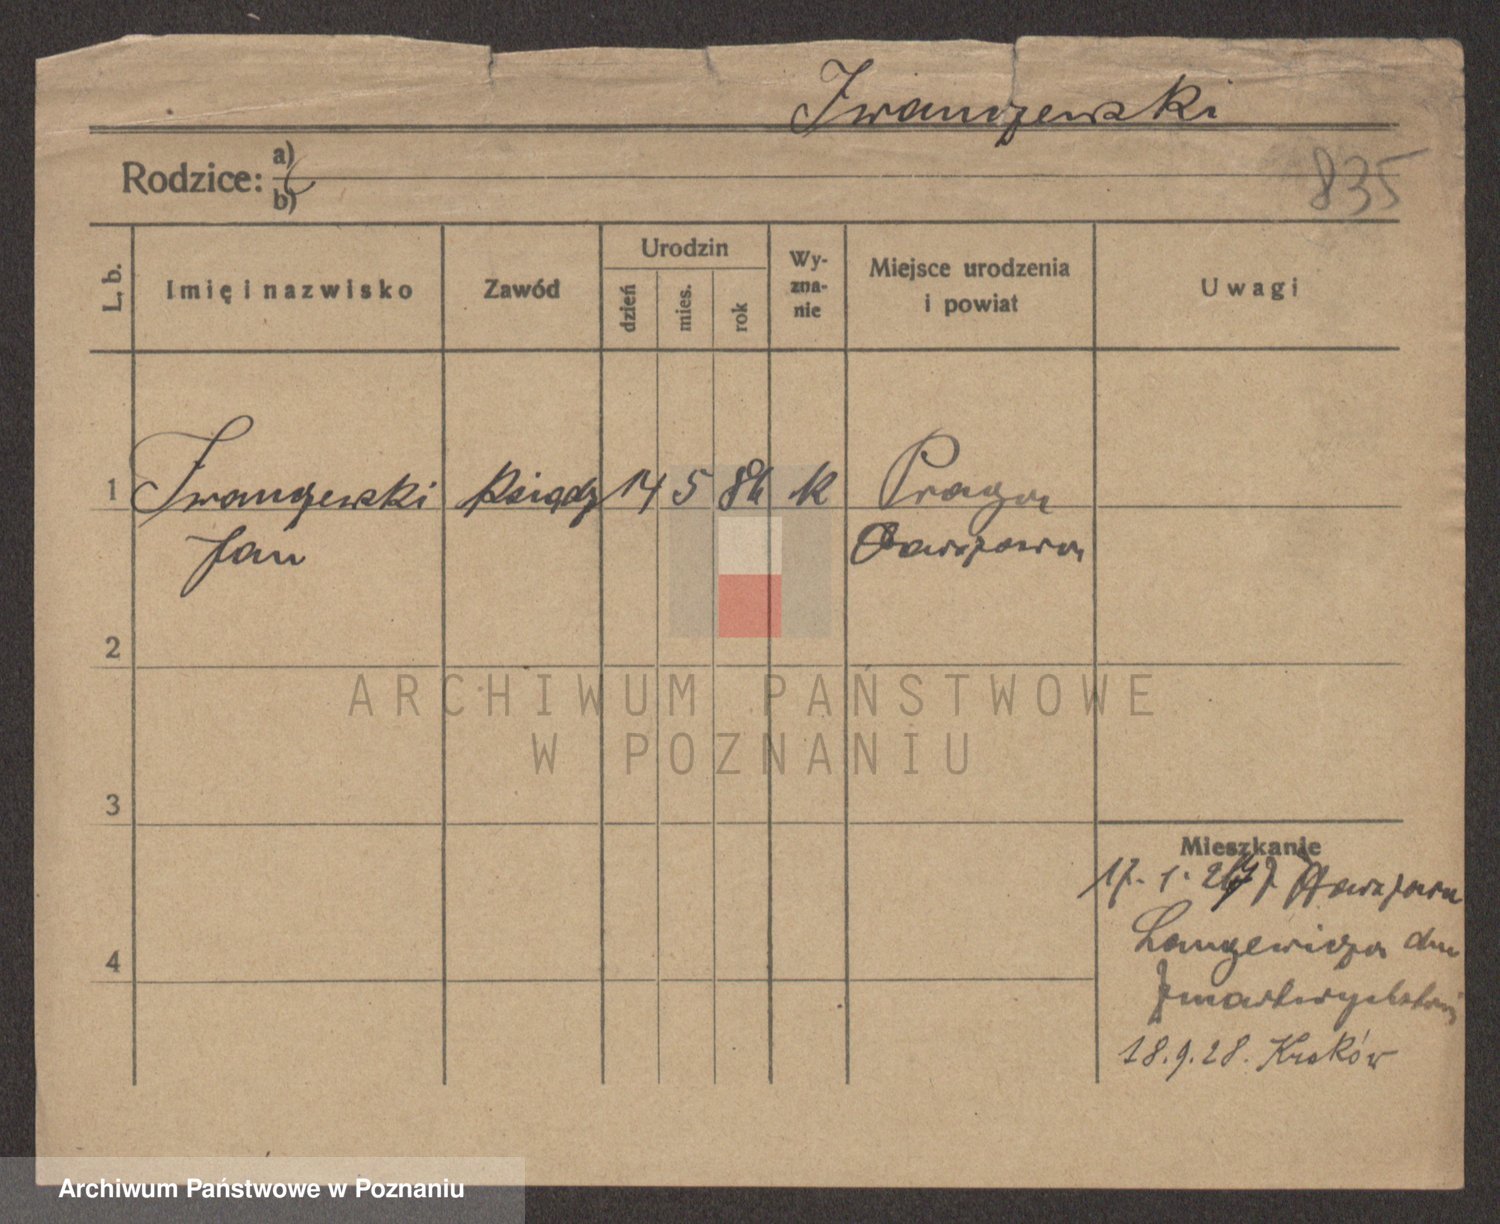 Iwanczewski
835
Rodzice: a)
b)
L. b.
Imię i nazwisko
Zawód
Urodzin
dzień
mies.
rok
Wy-
zna-
nie
Miejsce urodzenia
i powiat
Uwagi
1 Iwanczewski Ksiądz 14 5 84 k Praga
Jan Warszawa
2
3
4
Mieszkanie
17. 1. 27 Warszawa
18.9.28. Kraków
ARCHIWUM PAŃSTWOWE
W POZNANIU
Archiwum Państwowe w Poznaniu